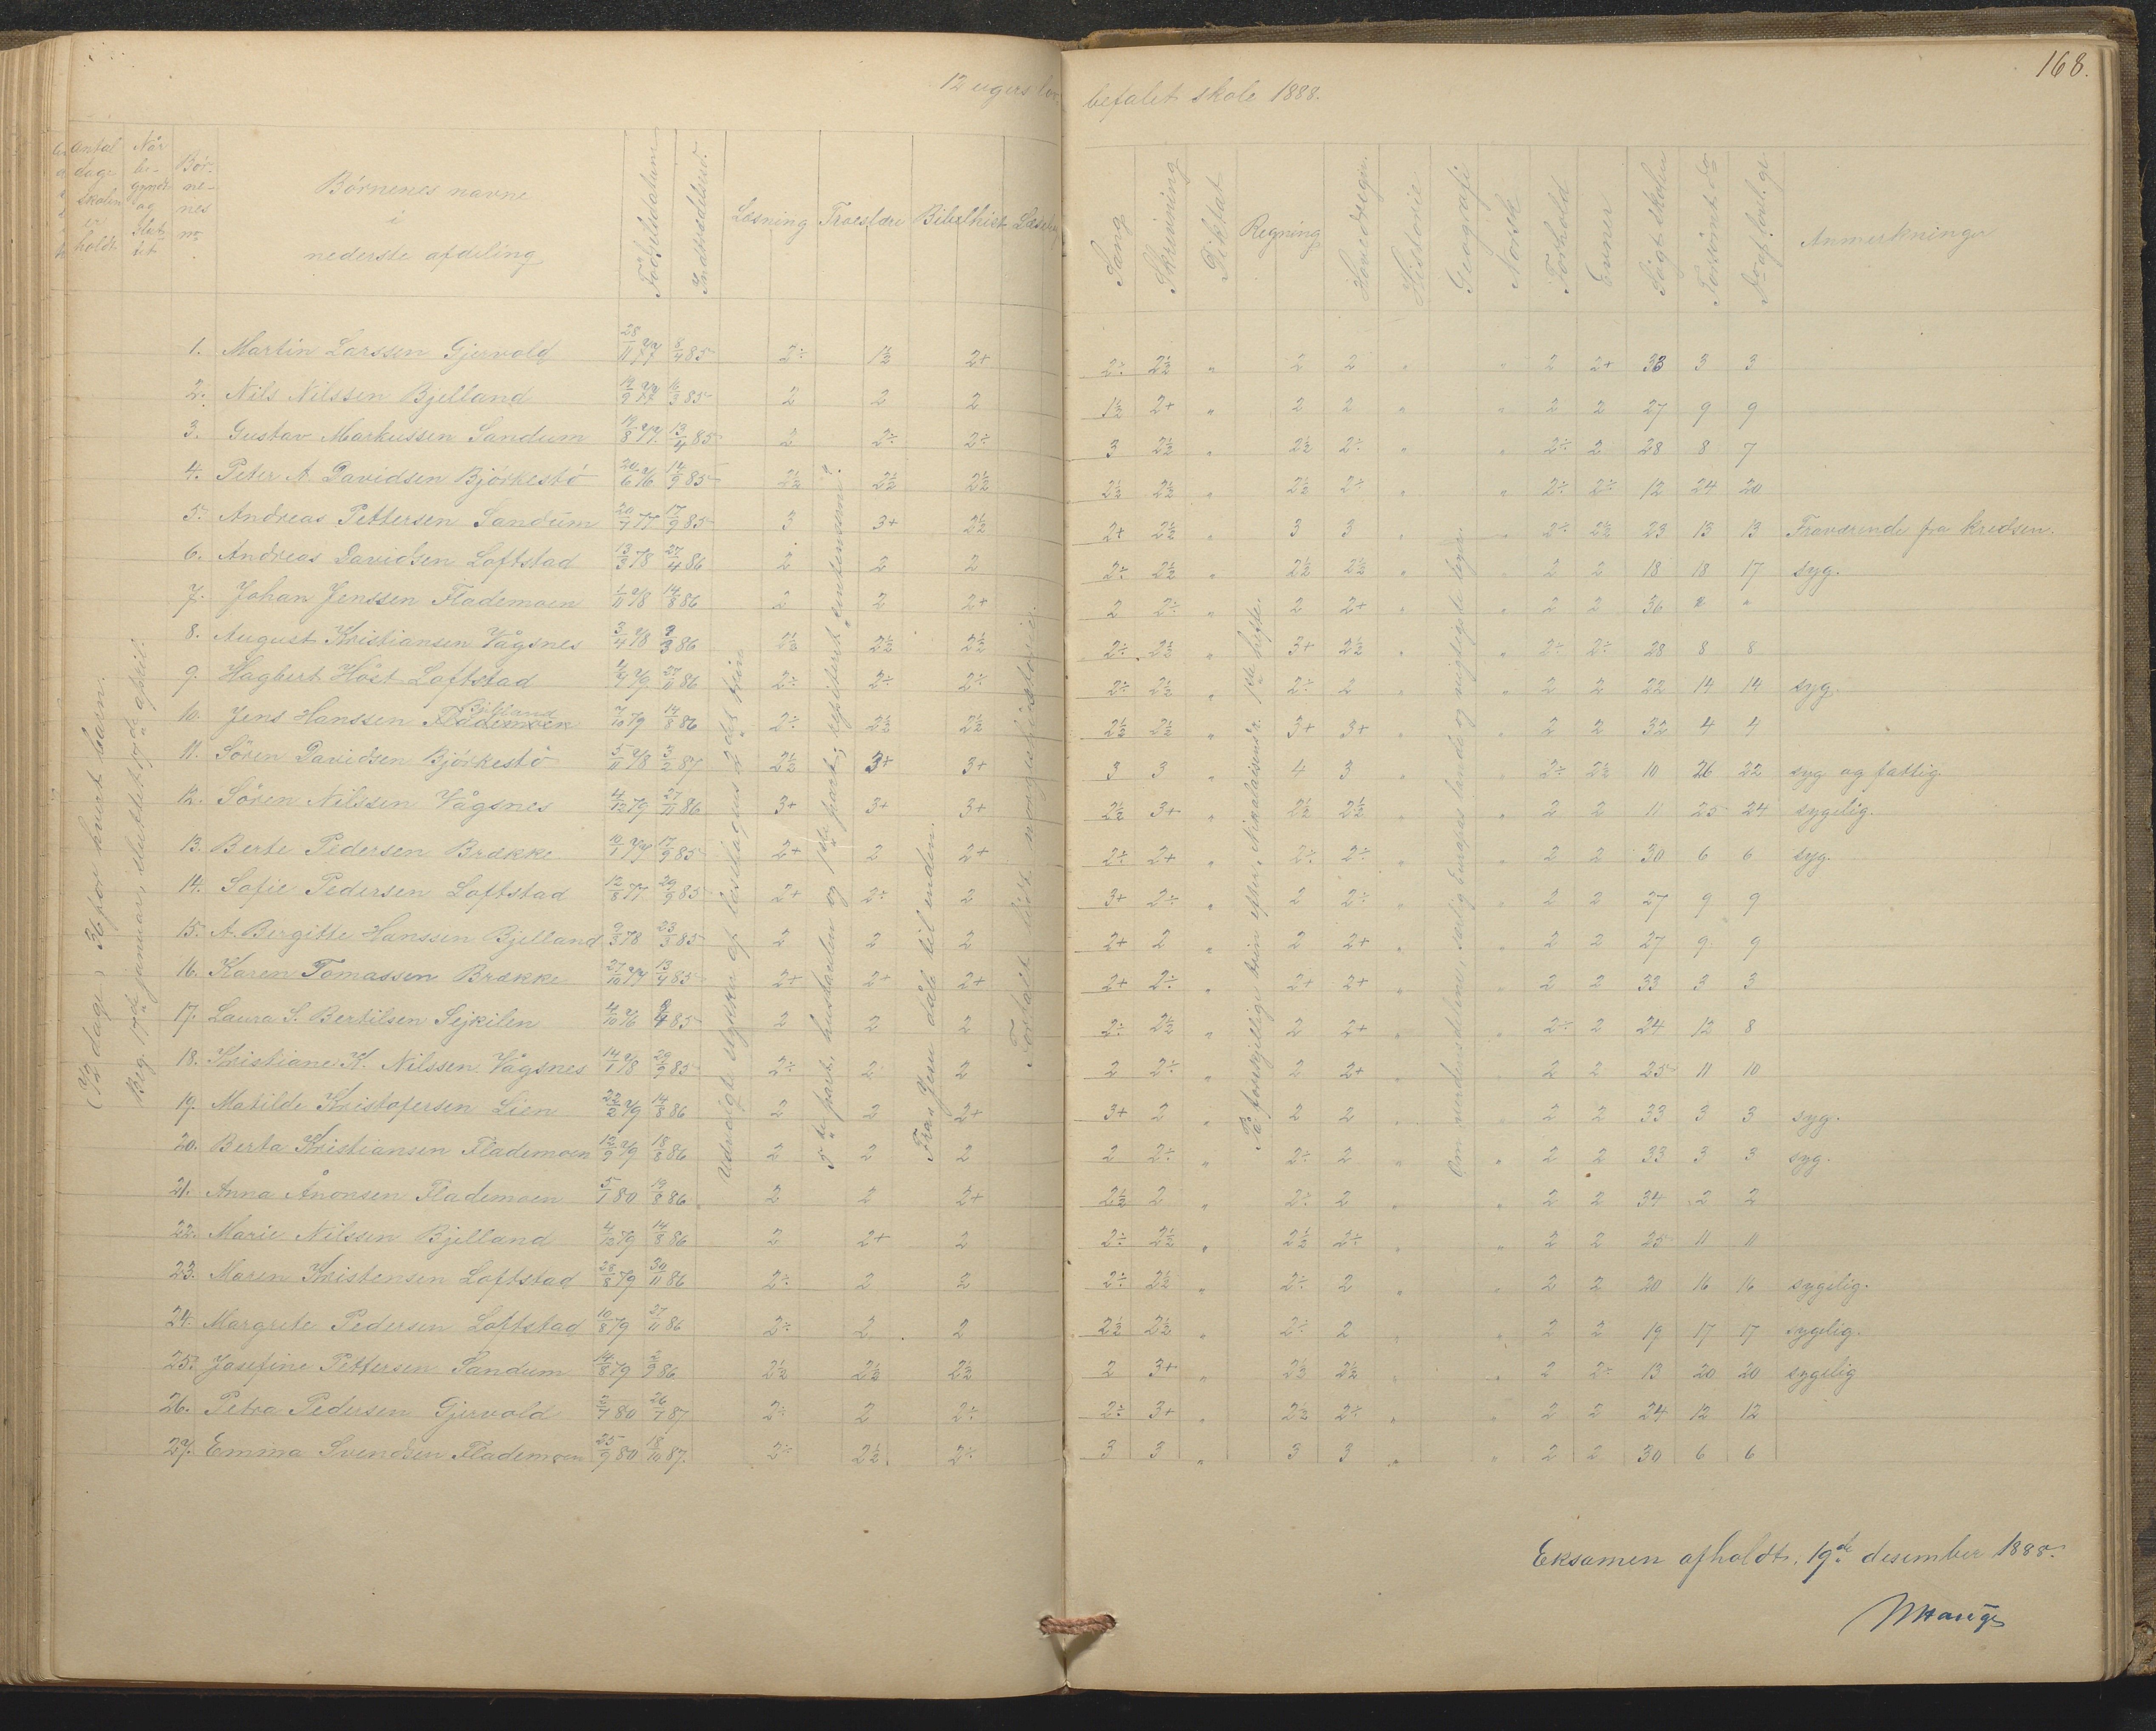 168.
12 ugers lov-
befalet skole 1888.
Antal dage skolen er holdt.
Når be-gyndt og slut-tet
Bør-ne-nes nr.
Børnenes navne i nederste afdeling
Fødselsdatum
Indtrædelsesd.
Læsning Troeslære Bibelhist. Læsebog
Sang Skrivning Diktat Regning Hovedregn. Historie Geografi Norsk Forhold Evner Søgt skolen Forsømt do Do af lovl. gr. Anmerkninger
1. Martin Larssen Gjervold 28/11 77 5/4 85 2÷ 1½ 2+ 2÷ 2½ „ 2 2 „ „ 2 2+ 33 3 3
2. Nils Nilssen Bjelland 19/9 77 16/3 85 2 2 2 1½ 2+ „ 2 2 „ „ 2 2 27 9 9
3. Gustav Markussen Sandum 19/8 77 13/4 85 2 2÷ 2÷ 3 2½ „ 2½ 2÷ „ „ 2÷ 2 28 8 7
4. Peter A. Davidsen Bjørkestø 24/6 76 14/9 85 2½ 2½ 2½ 2½ 2½ „ 2½ 2÷ „ „ 2÷ 2÷ 12 24 20
5. Andreas Pettersen Sandum 20/7 77 17/9 85 3 3+ 2½ 2+ 2½ „ 3 3 „ „ 2÷ 2½ 23 13 13 Fraværende fra kredsen.
6. Andreas Davidsen Loftstad 13/3 78 27/4 86 2 2 2 2÷ 2½ „ 2½ 2½ „ „ 2 2 18 18 17 syg.
7. Johan Jenssen Flademoen 1/11 78 14/8 86 2 2 2+ 2 2÷ „ 2 2+ „ „ 2 2 36 „ „
8. August Kristiansen Vågsnes 3/4 78 9/3 86 2½ 2½ 2½ 2÷ 2½ „ 3+ 2½ „ „ 2÷ 2÷ 28 8 8
9. Hagbert Høst Loftstad 4/7 79 27/11 86 2÷ 2÷ 2÷ 2÷ 2½ „ 2÷ 2 „ „ 2 2 22 14 14 syg.
10. Jens Hanssen Flademoen Bjelland 7/10 79 14/8 86 2÷ 2½ 2½ 2½ 2½ „ 3+ 3+ „ „ 2 2 32 4 4
11. Sören Davidsen Bjørkestø 5/11 78 3/2 87 2½ 3+ 3+ 3 3 „ 4 3 „ „ 2÷ 2½ 10 26 22 syg og fattig
12. Sören Nilssen Vågsnes 4/12 79 27/11 86 3+ 3+ 3+ 2½ 3+ „ 2½ 2½ „ „ 2 2 11 25 24 sygelig.
13. Berte Pedersen Brække 10/1 77 17/9 85 2+ 2 2+ 2÷ 2+ „ 2÷ 2÷ „ „ 2 2 30 6 6 syg.
14. Sofie Pedersen Loftstad 12/8 77 29/9 85 2+ 2÷ 2 3+ 2÷ „ 2 2÷ „ „ 2 2 27 9 9
15. A. Bergitte Hanssen Bjelland 9/3 78 23/3 85 2 2 2 2+ 2 „ 2 2+ „ „ 2 2 27 9 9
16. Karen Tomassen Brække 27/10 77 13/4 85 2+ 2+ 2+ 2+ 2÷ „ 2+ 2+ „ „ 2 2 33 3 3
17. Laura S. Bertilsen Sejkilen 4/10 76 8/4 85 2 2 2 2÷ 2½ „ 2 2+ „ „ 2÷ 2 24 12 8
18. Kristiane K. Nilssen Vågsnes 14/1 78 29/9 85 2÷ 2 2 2 2÷ „ 2 2+ „ „ 2 2 25 11 10
19. Matilde Kristofersen Lien 22/2 79 14/8 86 2 2 2+ 3+ 2 „ 2 2 „ „ 2 2 33 3 3 syg.
20. Berta Kristiansen Flademoen 12/9 79 18/8 86 2 2 2 2 2÷ „ 2÷ 2 „ „ 2 2 33 3 3 syg.
21. Anna Ånonsen Flademoen 5/1 80 19/8 86 2 2 2+ 2½ 2 „ 2÷ 2 „ „ 2 2 34 2 2
22. Marie Nilssen Bjelland 4/12 79 14/8 86 2 2+ 2 2÷ 2½ „ 2½ 2÷ „ „ 2 2 25 11 11
23. Maren Kristensen Loftstad 28/8 79 30/11 86 2÷ 2 2 2÷ 2½ „ 2÷ 2 „ „ 2 2 20 16 16 sygelig.
24. Margrete Pedersen Loftstad 10/8 79 27/11 86 2÷ 2 2 2½ 2½ „ 2÷ 2 „ „ 2 2 19 17 17 sygelig.
25. Josefine Pettersen Sandum 14/8 79 2/9 86 2½ 2½ 2½ 2 3+ „ 2½ 2½ „ „ 2 2÷ 13 20 20 sygelig
26. Petra Pedersen Gjervold 2/7 80 26/7 87 2÷ 2 2÷ 2÷ 3+ „ 2½ 2÷ „ „ 2 2 24 12 12
27. Emma Svendsen Flademoen 25/9 80 18/10 87. 2÷ 2½ 2÷ 3 3 „ 3 3 „ „ 2 2 30 6 6
(72 dage), 36 for hvert barn.
Beg. 17de januar, sluttet 17de april.
Udvalgte stykker af læsebogens 2det trin
5te part, hustavlen og 1ste part, repiteret „sentensum".
Fra Jesu dåb til enden.
Fortalt lidt norgeshistorie.
På forskjellige trin efter „Nikolaisens“ 1ste hefte.
Om verdensdelene, særlig Europas lande og vigtigste byer.
Eksamen afholdt. 19de desember 1888.
M Hauge